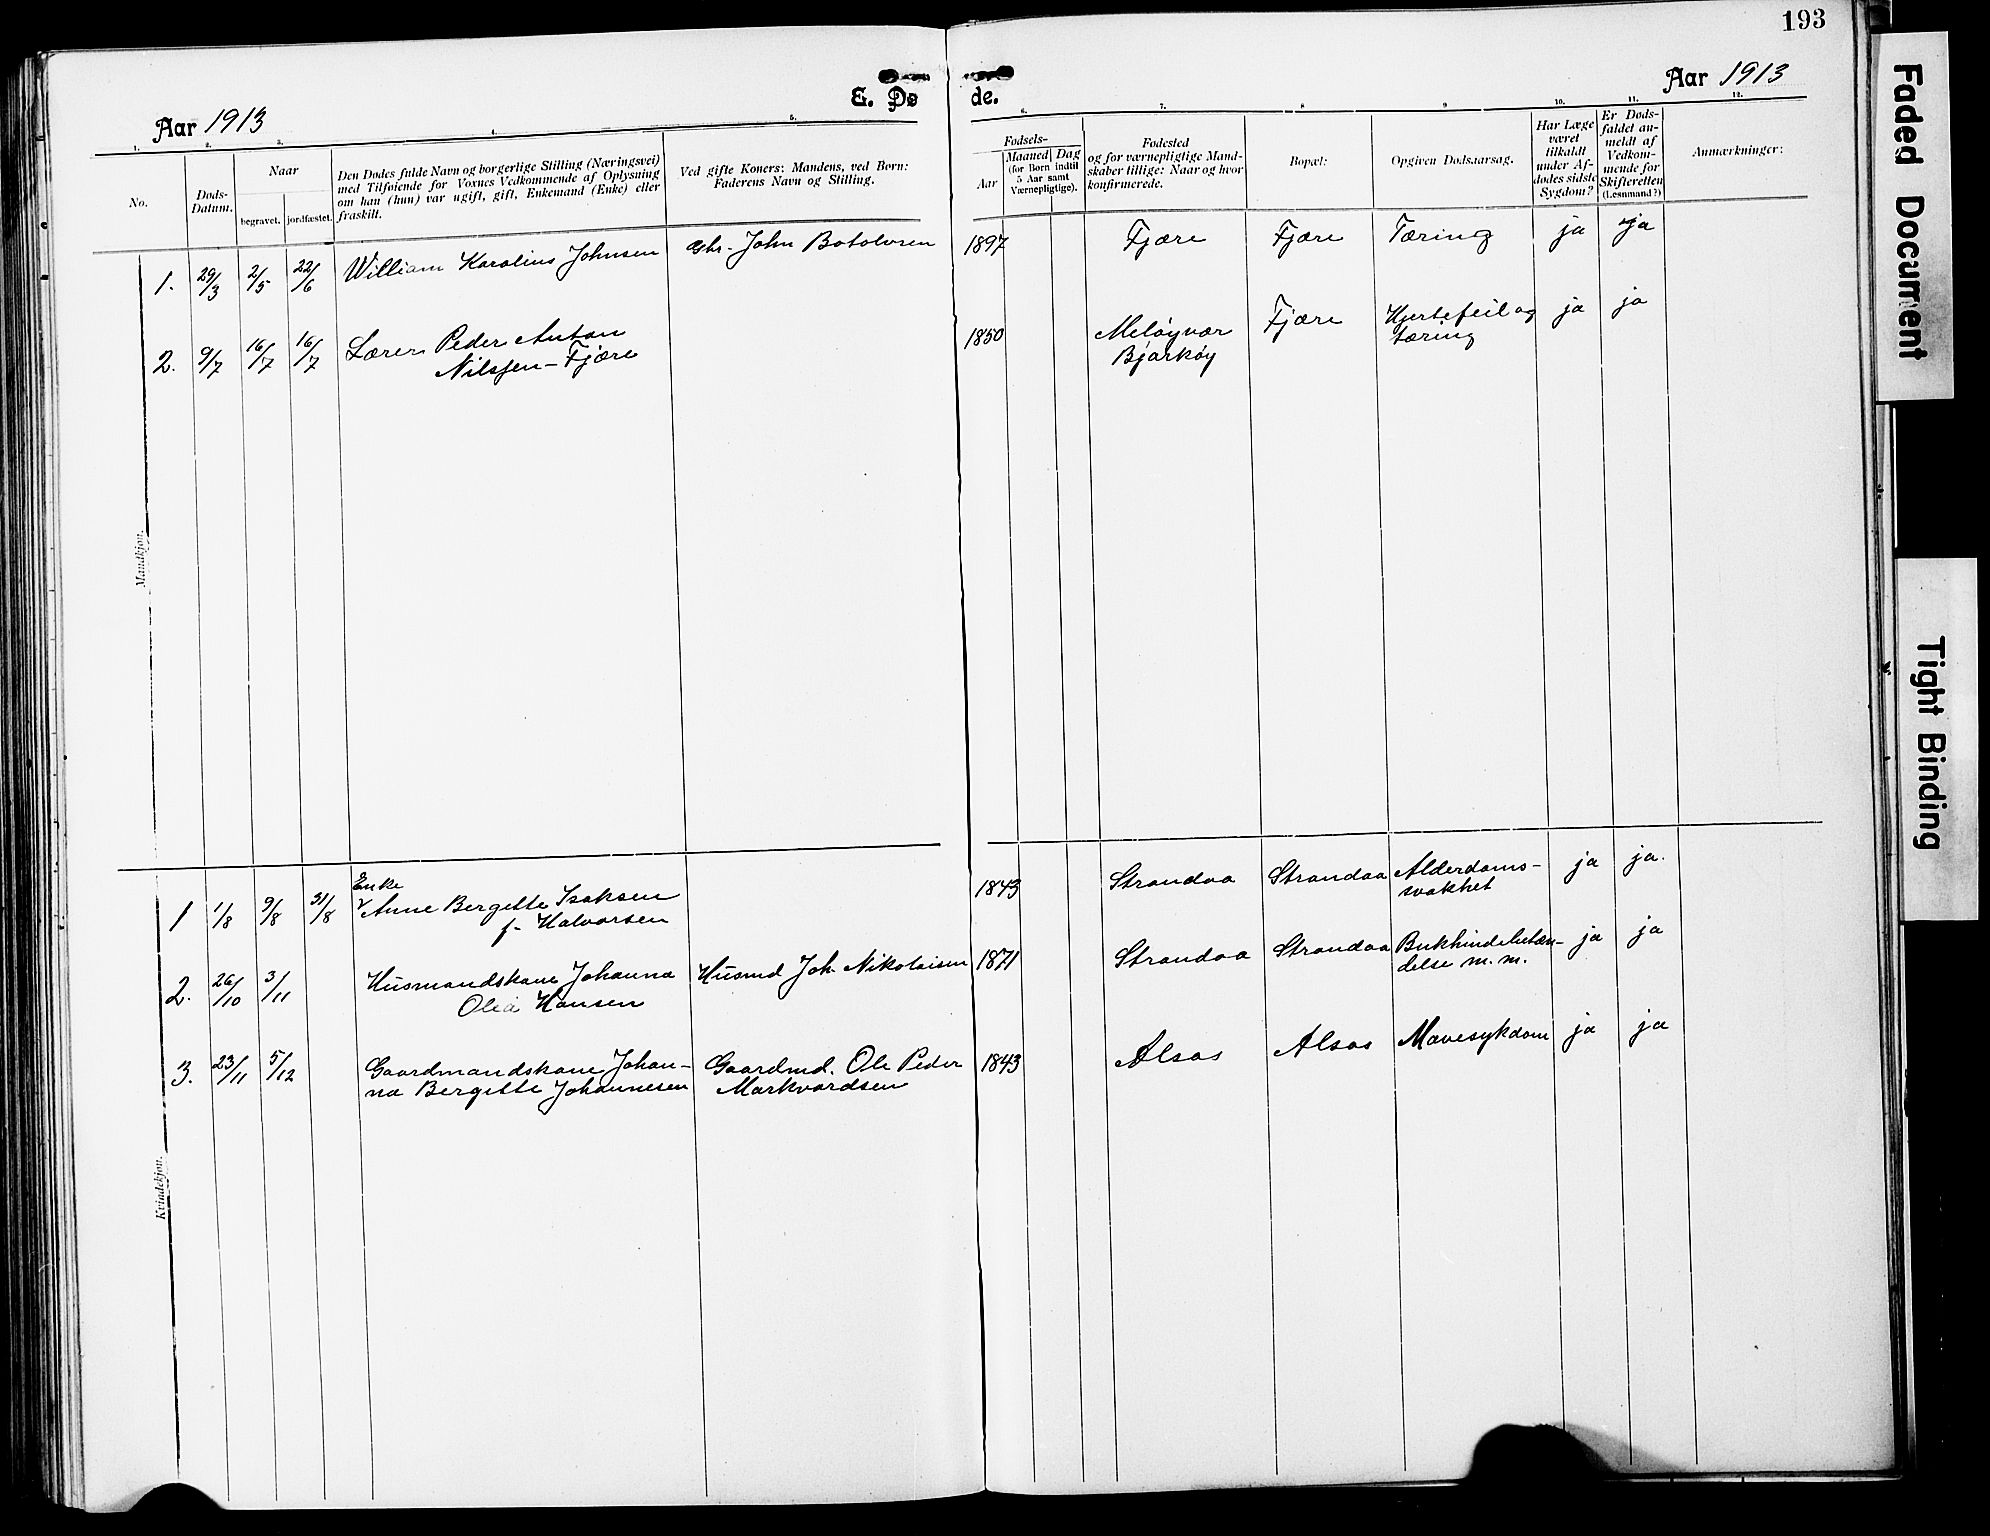 193
Aar 1913
E. Dø de.
Aar 1913
1. 2. 3. 4. 5. 6. 7. 8 9 10. 11. 12.
No.
Døds-
Datum.
Naar
begravet. jordfæstet.
Den Dødes fulde Navn og borgerlige Stilling (Næringsvei)
med Tilføiende for Voxnes Vedkommende af Oplysning
om han (hun) var ugift, gift, Enkemand (Enke) eller
fraskilt.
Ved gifte Koners: Mandens, ved Børn:
Faderens Navn og Stilling.
Fødsels-
Aar
Maaned Dag
(for Børn indtil
5 Aar samt
Værnepligtige).
Fødested
og for værnepligtige Mand-
skaber tillige: Naar og hvor
konfirmerede.
Bopæl:
Opgiven Dødsaarsag.
Har Læge
været
tilkaldt
under Af-
dødes sidste
Sygdom?
Er Døds-
faldet an-
meldt af
Vedkom-
mende for
Skifteretten
(Lensmand?)
Anmærkninger:
Mandkjøn.
1. 29/3 2/5 22/6 William Karolius Johnsen Gbr. John Botolvsen 1897 Fjære Fjære Tæring ja ja
2. 9/7 16/7 16/7 Lærer Peder Anton 1850 Meløyvær Fjære Hjertefeil og ja ja
Nilssen-Fjære Bjarkøy tæring
Kvindekjøn.
Enke
1 1/8 9/8 31/8 Anne Bergitte Isaksen 1843 Strandaa Strandaa Alderdoms- ja ja.
f. Halvorsen svakhet
2. 26/10 3/11 Husmandskone Johanna Husmd Joh. Nikolaisen 1871 Strandaa Strandaa Bukhindebetæn- ja ja
Olea Hansen delse m. m.
3. 23/11 5/12 Gaardmandskone Johan- Gaardmd. Ole Peder 1843 Alsos Alsos Mavesykdom ja ja
na Bergitte Johannesen Markvardsen
Faded Document
Tight Binding